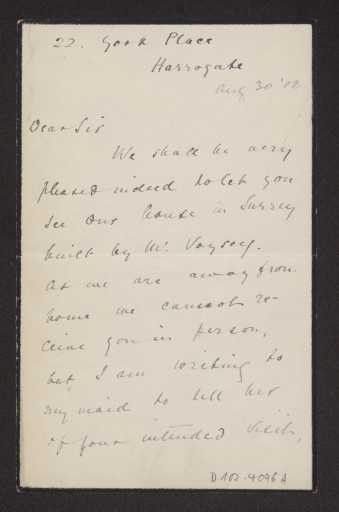 22. York Place
Harrogate
Aug 30 '02
Dear Sir
We shall be very
pleased indeed to let you
see our house in Surrey
built by Mr. Voysey.
As we are away from
home we cannot re-
ceive you in person,
but I am writing to
my maid to tell her
of your intended visit,
D 102-4096 A